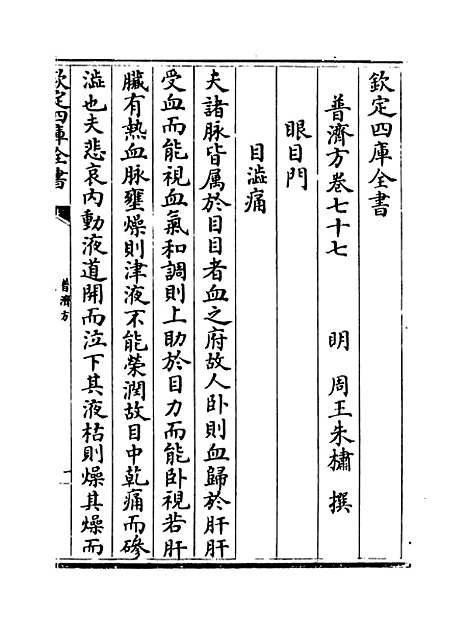 欽定四庫全書
普濟方卷七十七
明 周王朱橚 撰
眼目門
目澁痛
夫諸脉皆属於目目者血之府故人卧則血歸於肝肝
受血而能視血氣和調則上助於目力而能卧視若肝
臓有熱血脉壅燥則津液不能榮潤故目中乾痛而磣
澁也夫悲哀内動液道開而泣下其液枯則燥其燥而
欽定四庫全書
普濟方